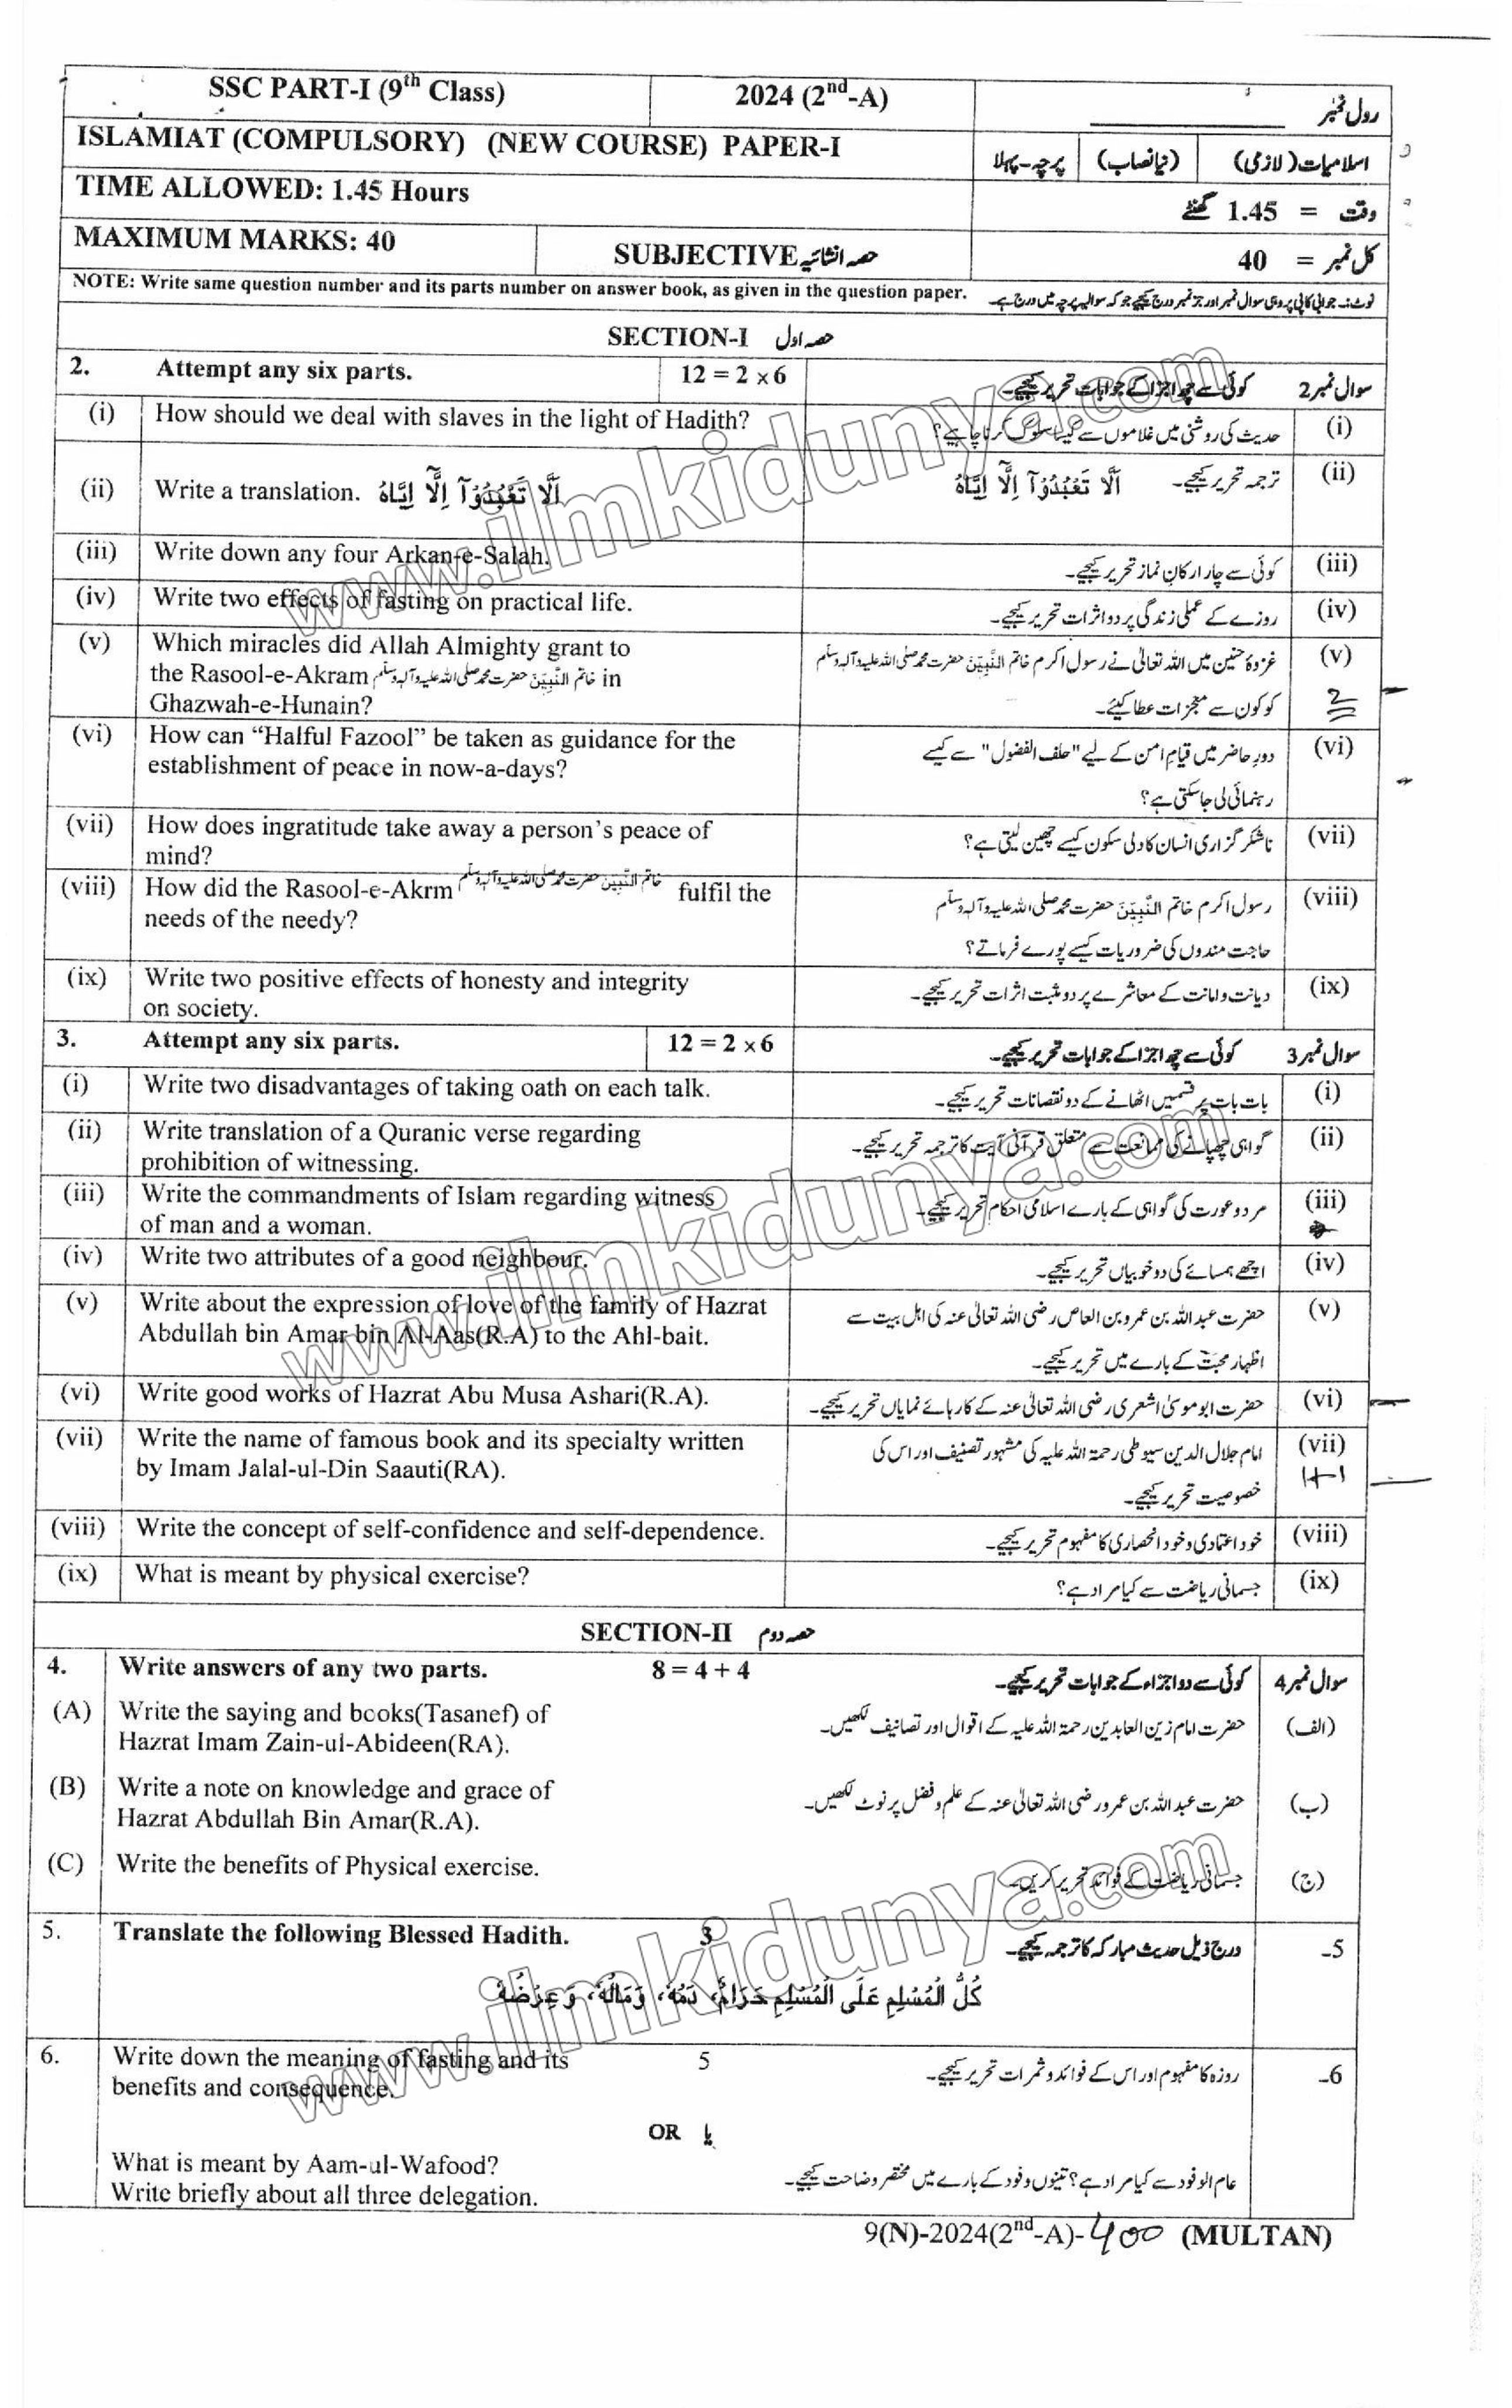 SSC PART-I (9th Class) 2024 (2nd-A) رول نمبر
ISLAMIAT (COMPULSORY) (NEW COURSE) PAPER-I اسلامیات (لازمی) (نیا نصاب) پرچہ - پہلا
TIME ALLOWED: 1.45 Hours وقت = 1.45 گھنٹے
MAXIMUM MARKS: 40 SUBJECTIVE حصہ انشائیہ کل نمبر = 40
NOTE: Write same question number and its parts number on answer book, as given in the question paper. نوٹ:۔ جوابی کاپی پر وہی سوال نمبر اور جز نمبر درج کیجیے جو کہ سوالیہ پرچہ میں درج ہے۔
SECTION-I حصہ اول
2. Attempt any six parts. 12 = 2 x 6 سوال نمبر 2 کوئی سے چھ اجزا کے جوابات تحریر کیجیے۔
(i) How should we deal with slaves in the light of Hadith? حدیث کی روشنی میں غلاموں سے کیسا سلوک کرنا چاہیے؟ (i)
(ii) Write a translation. اَلَّا تَعْبُدُوْۤا اِلَّاۤ اِيَّاهُ ترجمہ تحریر کیجیے۔ اَلَّا تَعْبُدُوْۤا اِلَّاۤ اِيَّاهُ (ii)
(iii) Write down any four Arkan-e-Salah. کوئی سے چار ارکانِ نماز تحریر کیجیے۔ (iii)
(iv) Write two effects of fasting on practical life. روزے کے عملی زندگی پر دو اثرات تحریر کیجیے۔ (iv)
(v) Which miracles did Allah Almighty grant to غزوۂ حنین میں اللہ تعالٰی نے رسول اکرم خاتم النَّبِیّٖن حضرت محمد صلی اللہ علیہ وآلہ وسلم (v)
the Rasool-e-Akram خاتم النَّبِیّٖن حضرت محمد صلی اللہ علیہ وآلہ وسلم in
Ghazwah-e-Hunain? کو کون سے معجزات عطا کیئے۔ 2
(vi) How can “Halful Fazool” be taken as guidance for the دورِ حاضر میں قیامِ امن کے لیے "حلف الفضول" سے کیسے (vi)
establishment of peace in now-a-days? رہنمائی لی جا سکتی ہے؟
(vii) How does ingratitude take away a person’s peace of ناشکر گزاری انسان کا دلی سکون کیسے چھین لیتی ہے؟ (vii)
mind?
(viii) How did the Rasool-e-Akrm خاتم النَّبِیّٖن حضرت محمد صلی اللہ علیہ وآلہ وسلم fulfil the رسول اکرم خاتم النَّبِیّٖن حضرت محمد صلی اللہ علیہ وآلہ وسلم (viii)
needs of the needy? حاجت مندوں کی ضروریات کیسے پورے فرماتے؟
(ix) Write two positive effects of honesty and integrity دیانت و امانت کے معاشرے پر دو مثبت اثرات تحریر کیجیے۔ (ix)
on society.
3. Attempt any six parts. 12 = 2 x 6 سوال نمبر 3 کوئی سے چھ اجزا کے جوابات تحریر کیجیے۔
(i) Write two disadvantages of taking oath on each talk. بات بات پر قسمیں اٹھانے کے دو نقصانات تحریر کیجیے۔ (i)
(ii) Write translation of a Quranic verse regarding گواہی چھپانے کی ممانعت سے متعلق قرآنی آیت کا ترجمہ تحریر کیجیے۔ (ii)
prohibition of witnessing.
(iii) Write the commandments of Islam regarding witness مرد و عورت کی گواہی کے بارے اسلامی احکام تحریر کیجیے۔ (iii)
of man and a woman.
(iv) Write two attributes of a good neighbour. اچھے ہمسائے کی دو خوبیاں تحریر کیجیے۔ (iv)
(v) Write about the expression of love of the family of Hazrat حضرت عبد اللہ بن عمرو بن العاص رضی اللہ تعالٰی عنہ کی اہل بیت سے (v)
Abdullah bin Amar bin Al-Aas(R.A) to the Ahl-bait. اظہار محبت کے بارے میں تحریر کیجیے۔
(vi) Write good works of Hazrat Abu Musa Ashari(R.A). حضرت ابو موسیٰ اشعری رضی اللہ تعالٰی عنہ کے کارہائے نمایاں تحریر کیجیے۔ (vi)
(vii) Write the name of famous book and its specialty written امام جلال الدین سیوطی رحمۃ اللہ علیہ کی مشہور تصنیف اور اس کی (vii)
by Imam Jalal-ul-Din Saauti(RA). خصوصیت تحریر کیجیے۔ 1+1
(viii) Write the concept of self-confidence and self-dependence. خود اعتمادی و خود انحصاری کا مفہوم تحریر کیجیے۔ (viii)
(ix) What is meant by physical exercise? جسمانی ریاضت سے کیا مراد ہے؟ (ix)
SECTION-II حصہ دوم
4. Write answers of any two parts. 8 = 4 + 4 سوال نمبر 4 کوئی سے دو اجزاء کے جوابات تحریر کیجیے۔
(A) Write the saying and books(Tasanef) of حضرت امام زین العابدین رحمۃ اللہ علیہ کے اقوال اور تصانیف لکھیں۔ (الف)
Hazrat Imam Zain-ul-Abideen(RA).
(B) Write a note on knowledge and grace of حضرت عبد اللہ بن عمرو رضی اللہ تعالٰی عنہ کے علم و فضل پر نوٹ لکھیں۔ (ب)
Hazrat Abdullah Bin Amar(R.A).
(C) Write the benefits of Physical exercise. جسمانی ریاضت کے فوائد تحریر کریں۔ (ج)
5. Translate the following Blessed Hadith. 3 درج ذیل حدیث مبارکہ کا ترجمہ کیجیے۔ 5-
كُلُّ الْمُسْلِمِ عَلَى الْمُسْلِمِ حَرَامٌ، دَمُهٗ، وَمَالُهٗ، وَعِرْضُهٗ
6. Write down the meaning of fasting and its 5 روزہ کا مفہوم اور اس کے فوائد و ثمرات تحریر کیجیے۔ 6-
benefits and consequence.
OR یا
What is meant by Aam-ul-Wafood? عام الوفود سے کیا مراد ہے؟ تینوں وفود کے بارے میں مختصر وضاحت کیجیے۔
Write briefly about all three delegation.
9(N)-2024(2nd-A)-400 (MULTAN)
www.ilmkidunya.com
www.ilmkidunya.com
www.ilmkidunya.com